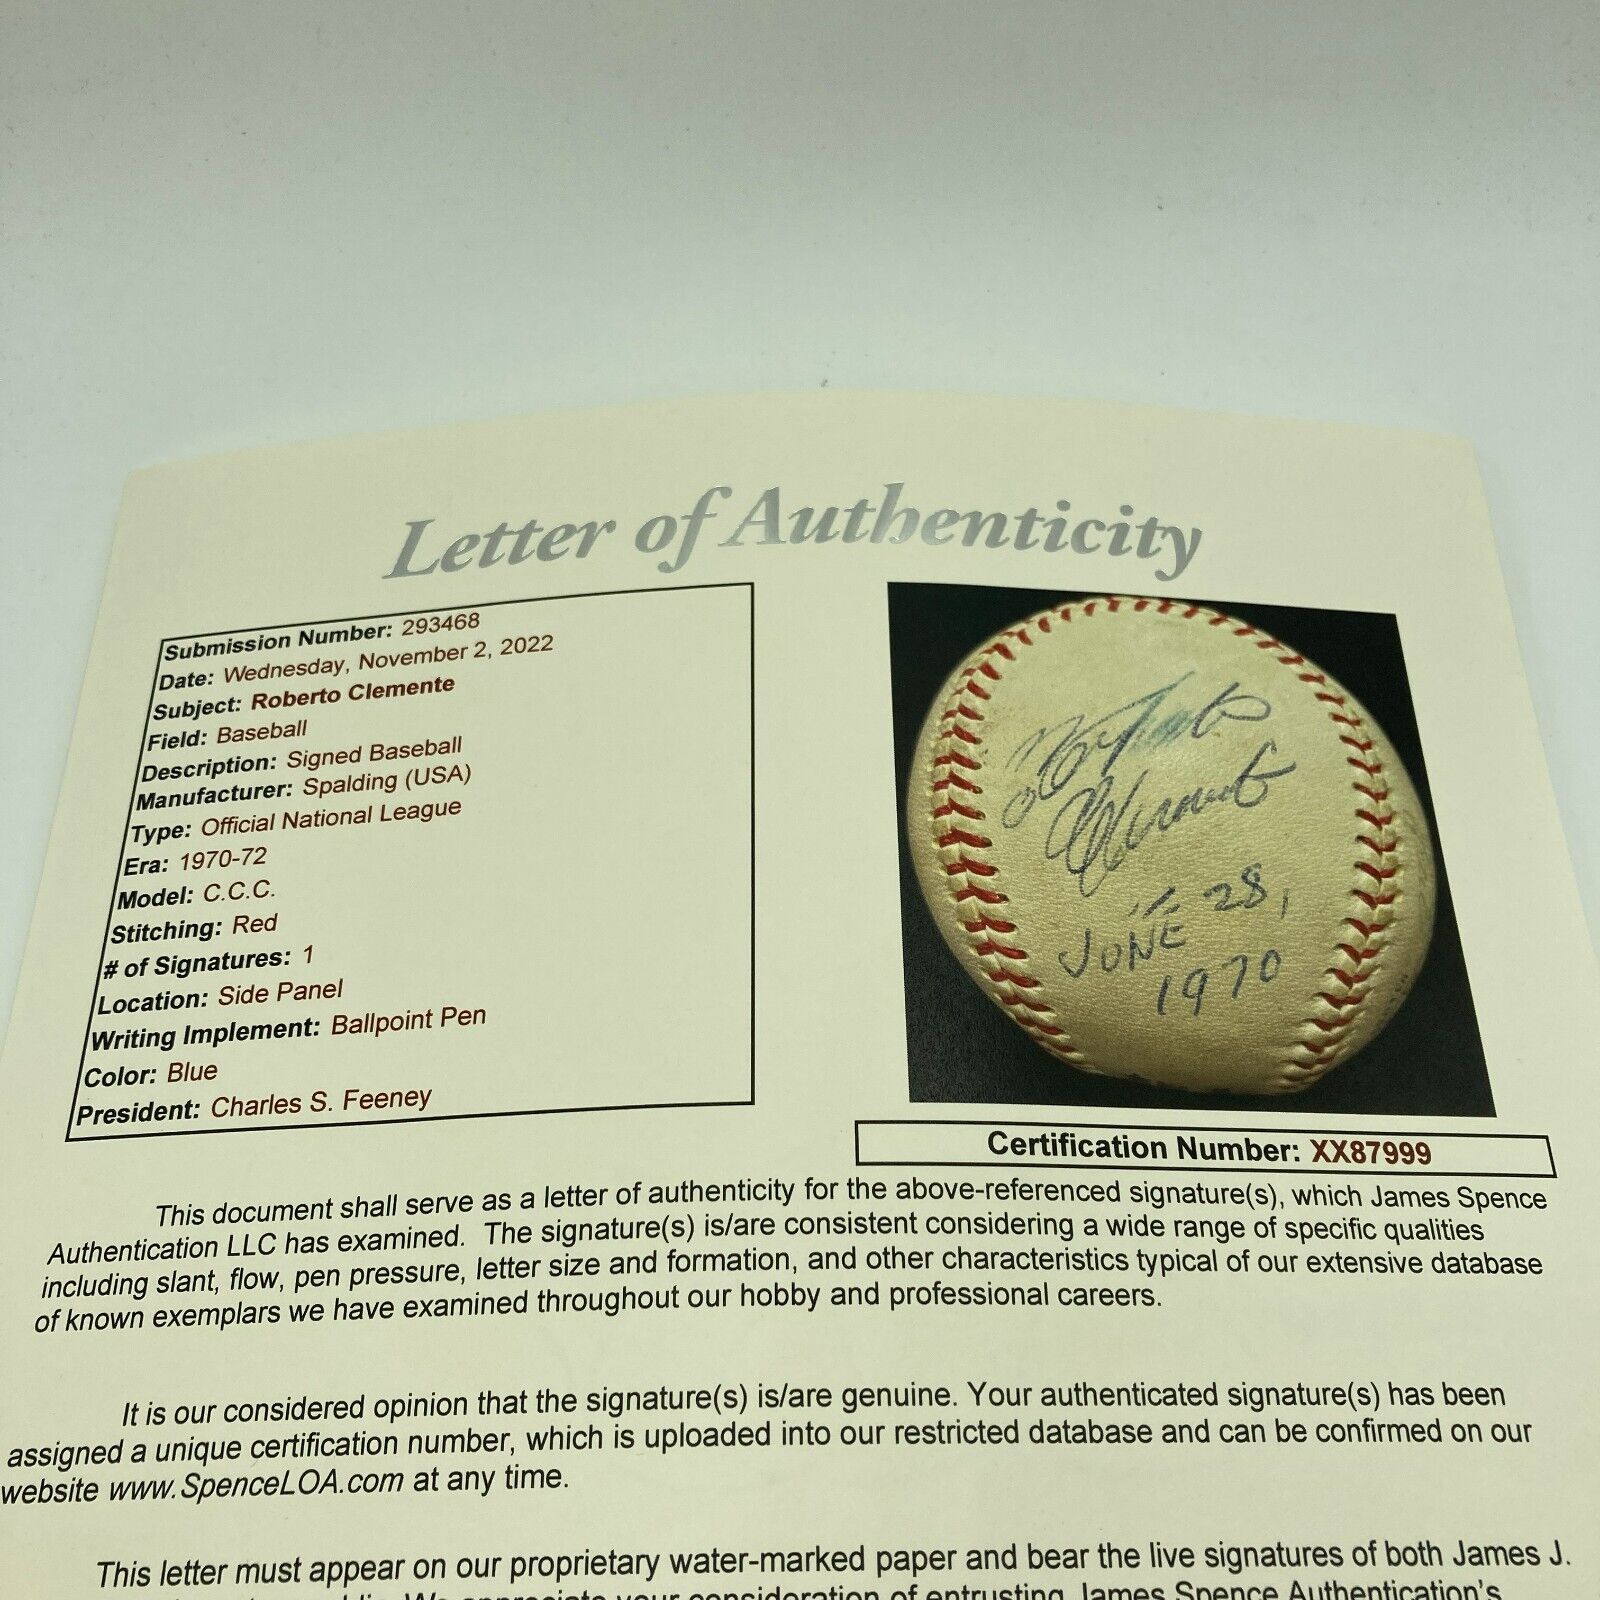 Letter of Authenticity
Submission Number: 293468
Date: Wednesday, November 2, 2022
Subject: Roberto Clemente
Field: Baseball
Description: Signed Baseball
Manufacturer: Spalding (USA)
Type: Official National League
Era: 1970-72
Model: C.C.C.
Stitching: Red
# of Signatures: 1
Location: Side Panel
Writing Implement: Ballpoint Pen
Color: Blue
President: Charles S. Feeney
Roberto
Clemente
JUNE 28,
1970
Certification Number: XX87999
This document shall serve as a letter of authenticity for the above-referenced signature(s), which James Spence
Authentication LLC has examined. The signature(s) is/are consistent considering a wide range of specific qualities
including slant, flow, pen pressure, letter size and formation, and other characteristics typical of our extensive database
of known exemplars we have examined throughout our hobby and professional careers.
It is our considered opinion that the signature(s) is/are genuine. Your authenticated signature(s) has been
assigned a unique certification number, which is uploaded into our restricted database and can be confirmed on our
website www.SpenceLOA.com at any time.
This letter must appear on our proprietary water-marked paper and bear the live signatures of both James J.
We appreciate your consideration of entrusting James Spence Authentication's